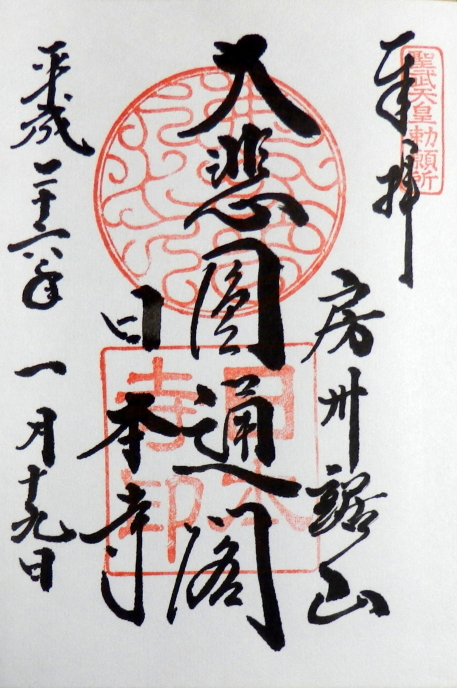 聖武天皇勅願所
奉拝
房州鋸山
大悲圓通閣
日本寺
日本寺印
平成二十六年
一月十九日